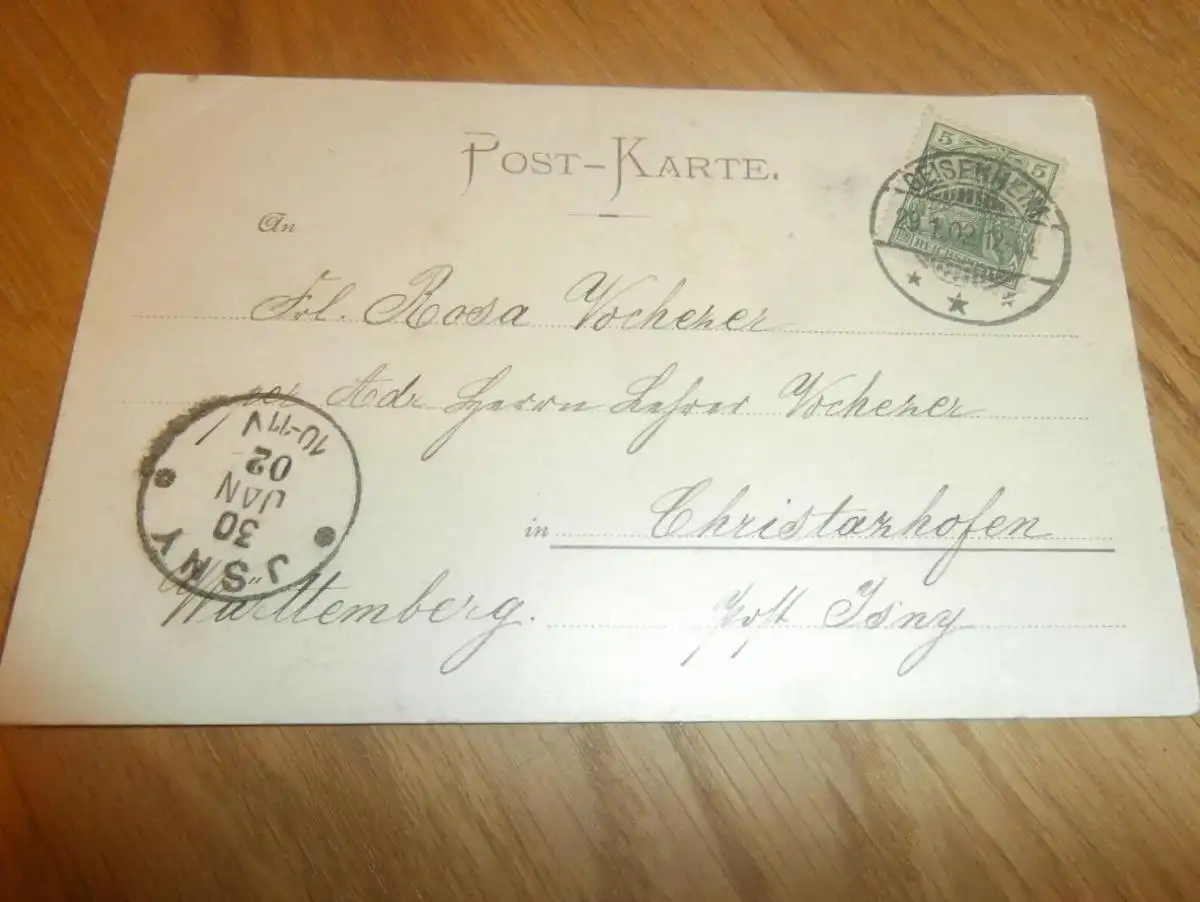 POST-KARTE.
5 5
REICHSPOST
GEISENHEIM
29.1.02 12-
An
Frl. Rosa Vochezer
per Adr. Herrn Lehrer Vochezer
in Christazhofen
Württemberg. Post Isny
JSNY
30
JAN
02
10-11V